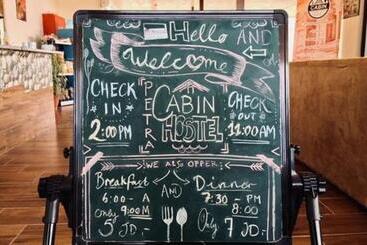 Hello AND
Welcome
CHECK IN 2:00 PM
PETRA CABIN HOSTEL
CHECK OUT 11:00 AM
WE ALSO OFFER:
Breakfast AND Dinner
6:00 - A 7:30 - PM
Only 9:00 M Only 8:00
5 JD 7 JD
CABIN